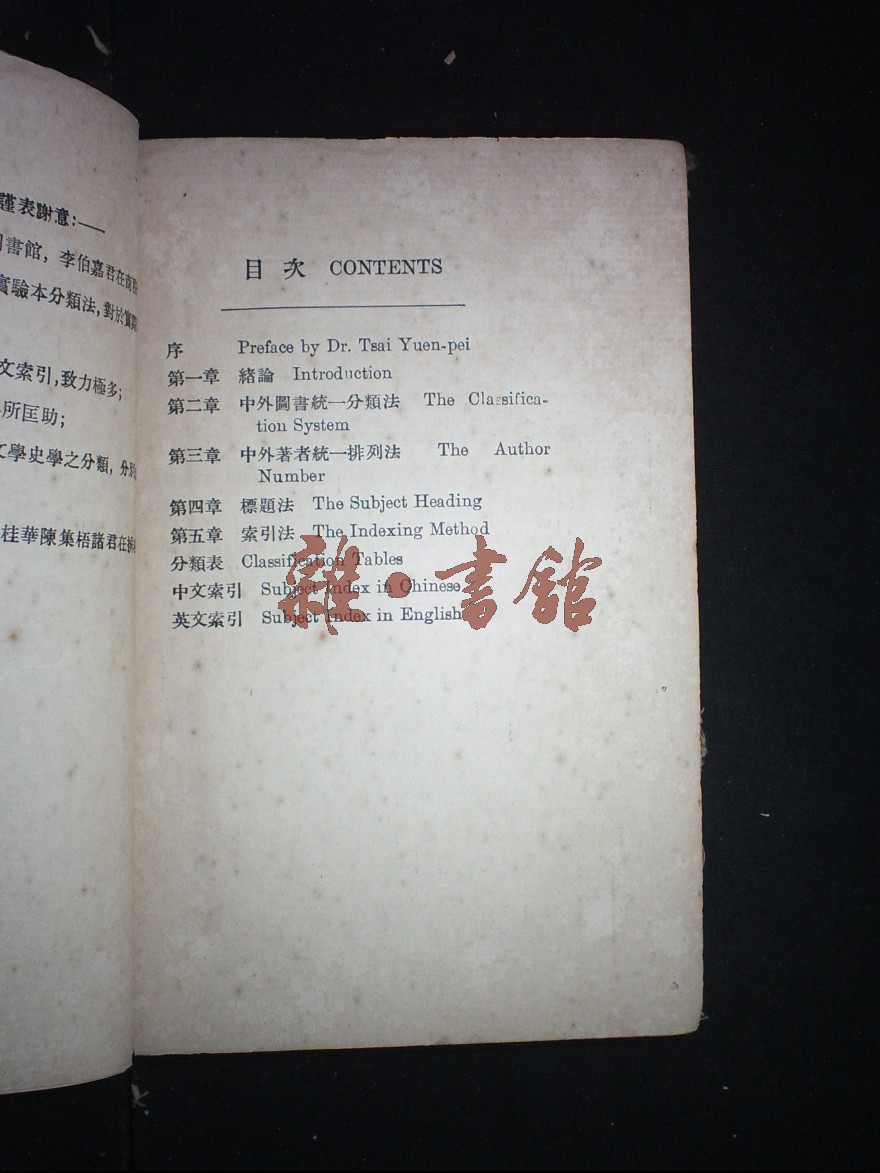 謹表謝意:——
書館，李伯嘉君在商
驗本分類法，對於實
文索引，致力極多；
所匡助；
文學史學之分類，分
桂華陳集梧諸君在
目次 CONTENTS
序 Preface by Dr. Tsai Yuen-pei
第一章 緒論 Introduction
第二章 中外圖書統一分類法 The Classifica-
tion System
第三章 中外著者統一排列法 The Author
Number
第四章 標題法 The Subject Heading
第五章 索引法 The Indexing Method
分類表 Classification Tables
中文索引 Subject Index in Chinese
英文索引 Subject Index in English
雜·書館